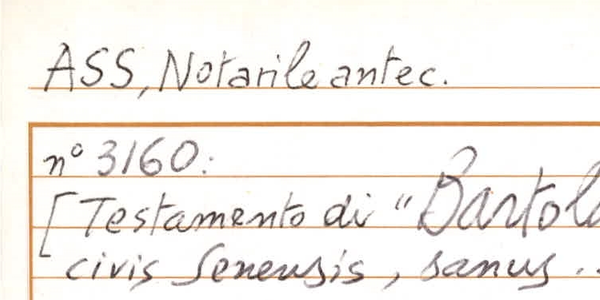 ASS, Notarile antec.
n° 3160:
[Testamento di "Bartol
civis Senensis, sanus ..